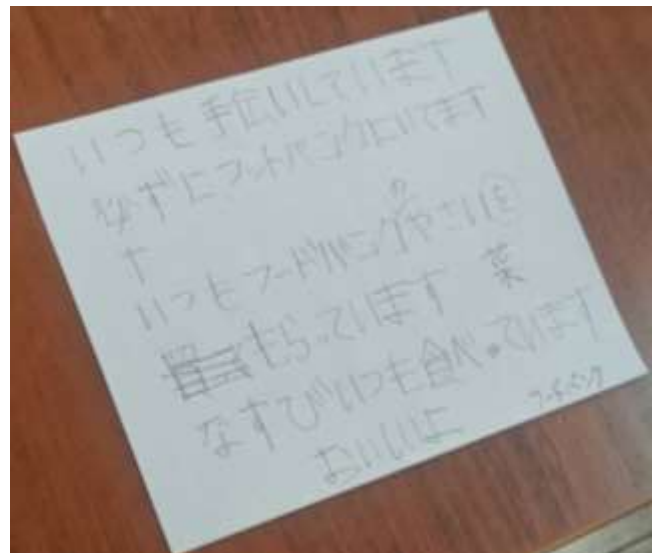 いつも手伝いしています
必ずにフットバンクにいてます
す
いつもフードバンクのやさいを
もらっています 菜
なすびいつも食べています
おいいよ フードバンク